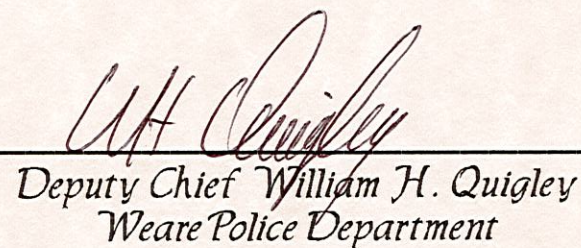 WH Quigley
Deputy Chief William H. Quigley
Weare Police Department